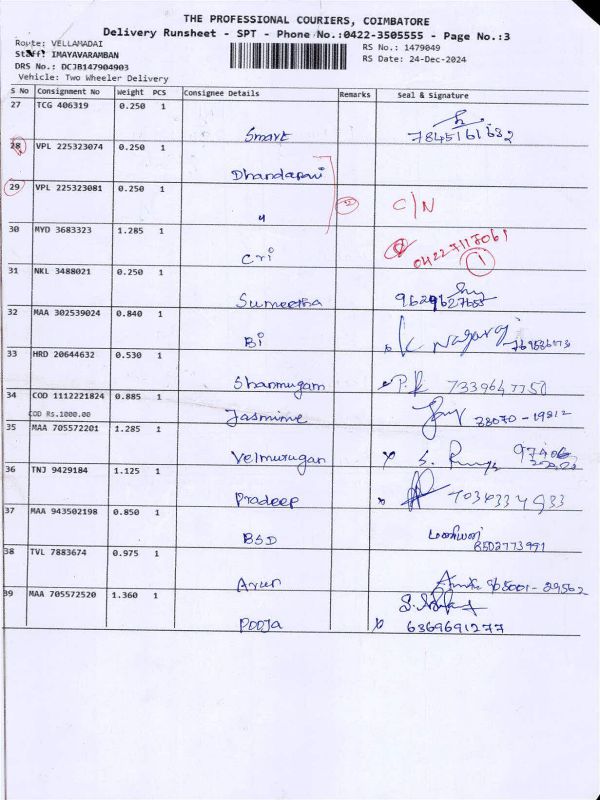 THE PROFESSIONAL COURIERS, COIMBATORE
Delivery Runsheet - SPT - Phone No.:0422-3505555 - Page No.:3
Route: VELLAMADAI
RS No.: 1479049
Staff: IMAYAVARAMBAN
RS Date: 24-Dec-2024
DRS No.: DCJB147904903
Vehicle: Two Wheeler Delivery
S No Consignment No Weight PCS Consignee Details Remarks Seal & Signature
27 TCG 406319 0.250 1
Smart 7845161632
28 VPL 225323074 0.250 1
Dhandapani
29 VPL 225323081 0.250 1
" C/N
30 MYD 3683323 1.285 1
Cri 04227117061 1
31 NKL 3488021 0.250 1
Sumeetha 9629627655
32 MAA 302539024 0.840 1
Bi K Nagaraj
33 HRD 20644632 0.530 1
Shanmugam P.R 7339647750
34 COD 1112221824 0.885 1
COD Rs.1000.00
Jasmime 78070-19812
35 MAA 705572201 1.285 1
Velmurugan x S. 97406
36 TNJ 9429184 1.125 1
Pradeep
37 MAA 943502198 0.850 1
BSD
38 TVL 7883674 0.975 1
Arun 965001-29562
39 MAA 705572520 1.360 1
Pooja x 6369691277